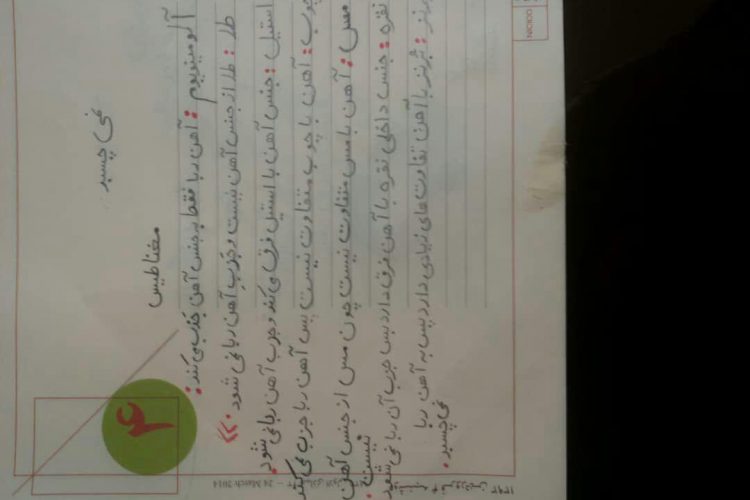 نمی چسبد
مغناطیس
آلومینیوم : آهن ربا فقط به جنس آهن جذب می کند :
طلا : طلا از جنس آهن نیست و جزب آهن ربا نمی شود
استیل : جنس آهن با استیل فرق می کند و جزب آهن ربا نمی شود
چوب : آهن با چوب متفاوت نیست پس آهن ربا جزب می کند
مس : آهن با مس متفاوت نیست چون مس از جنس آهن نیست .
نقره : جنس داخلی نقره با آهن فرق دارد پس جزب آن ربا نمی شود
برنز : برنز با آهن تفاوت های زیادی دارد پس به آهن ربا
نمی چسبد .
24 March 2014
۱۳۹۳
۴